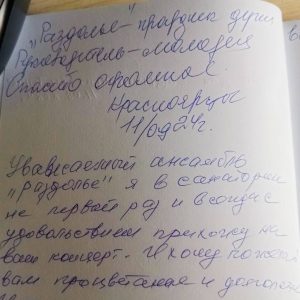 "Раздолье" - праздник души
Руководитель - молодец
Спасибо огромное!
Красноярцы
11/09 24г.
Уважаемый ансамбль
"раздолье" я в санатории
не первый раз и всегда с
удовольствием прихожу на
ваш концерт. И хочу пожелать
вам процветания и